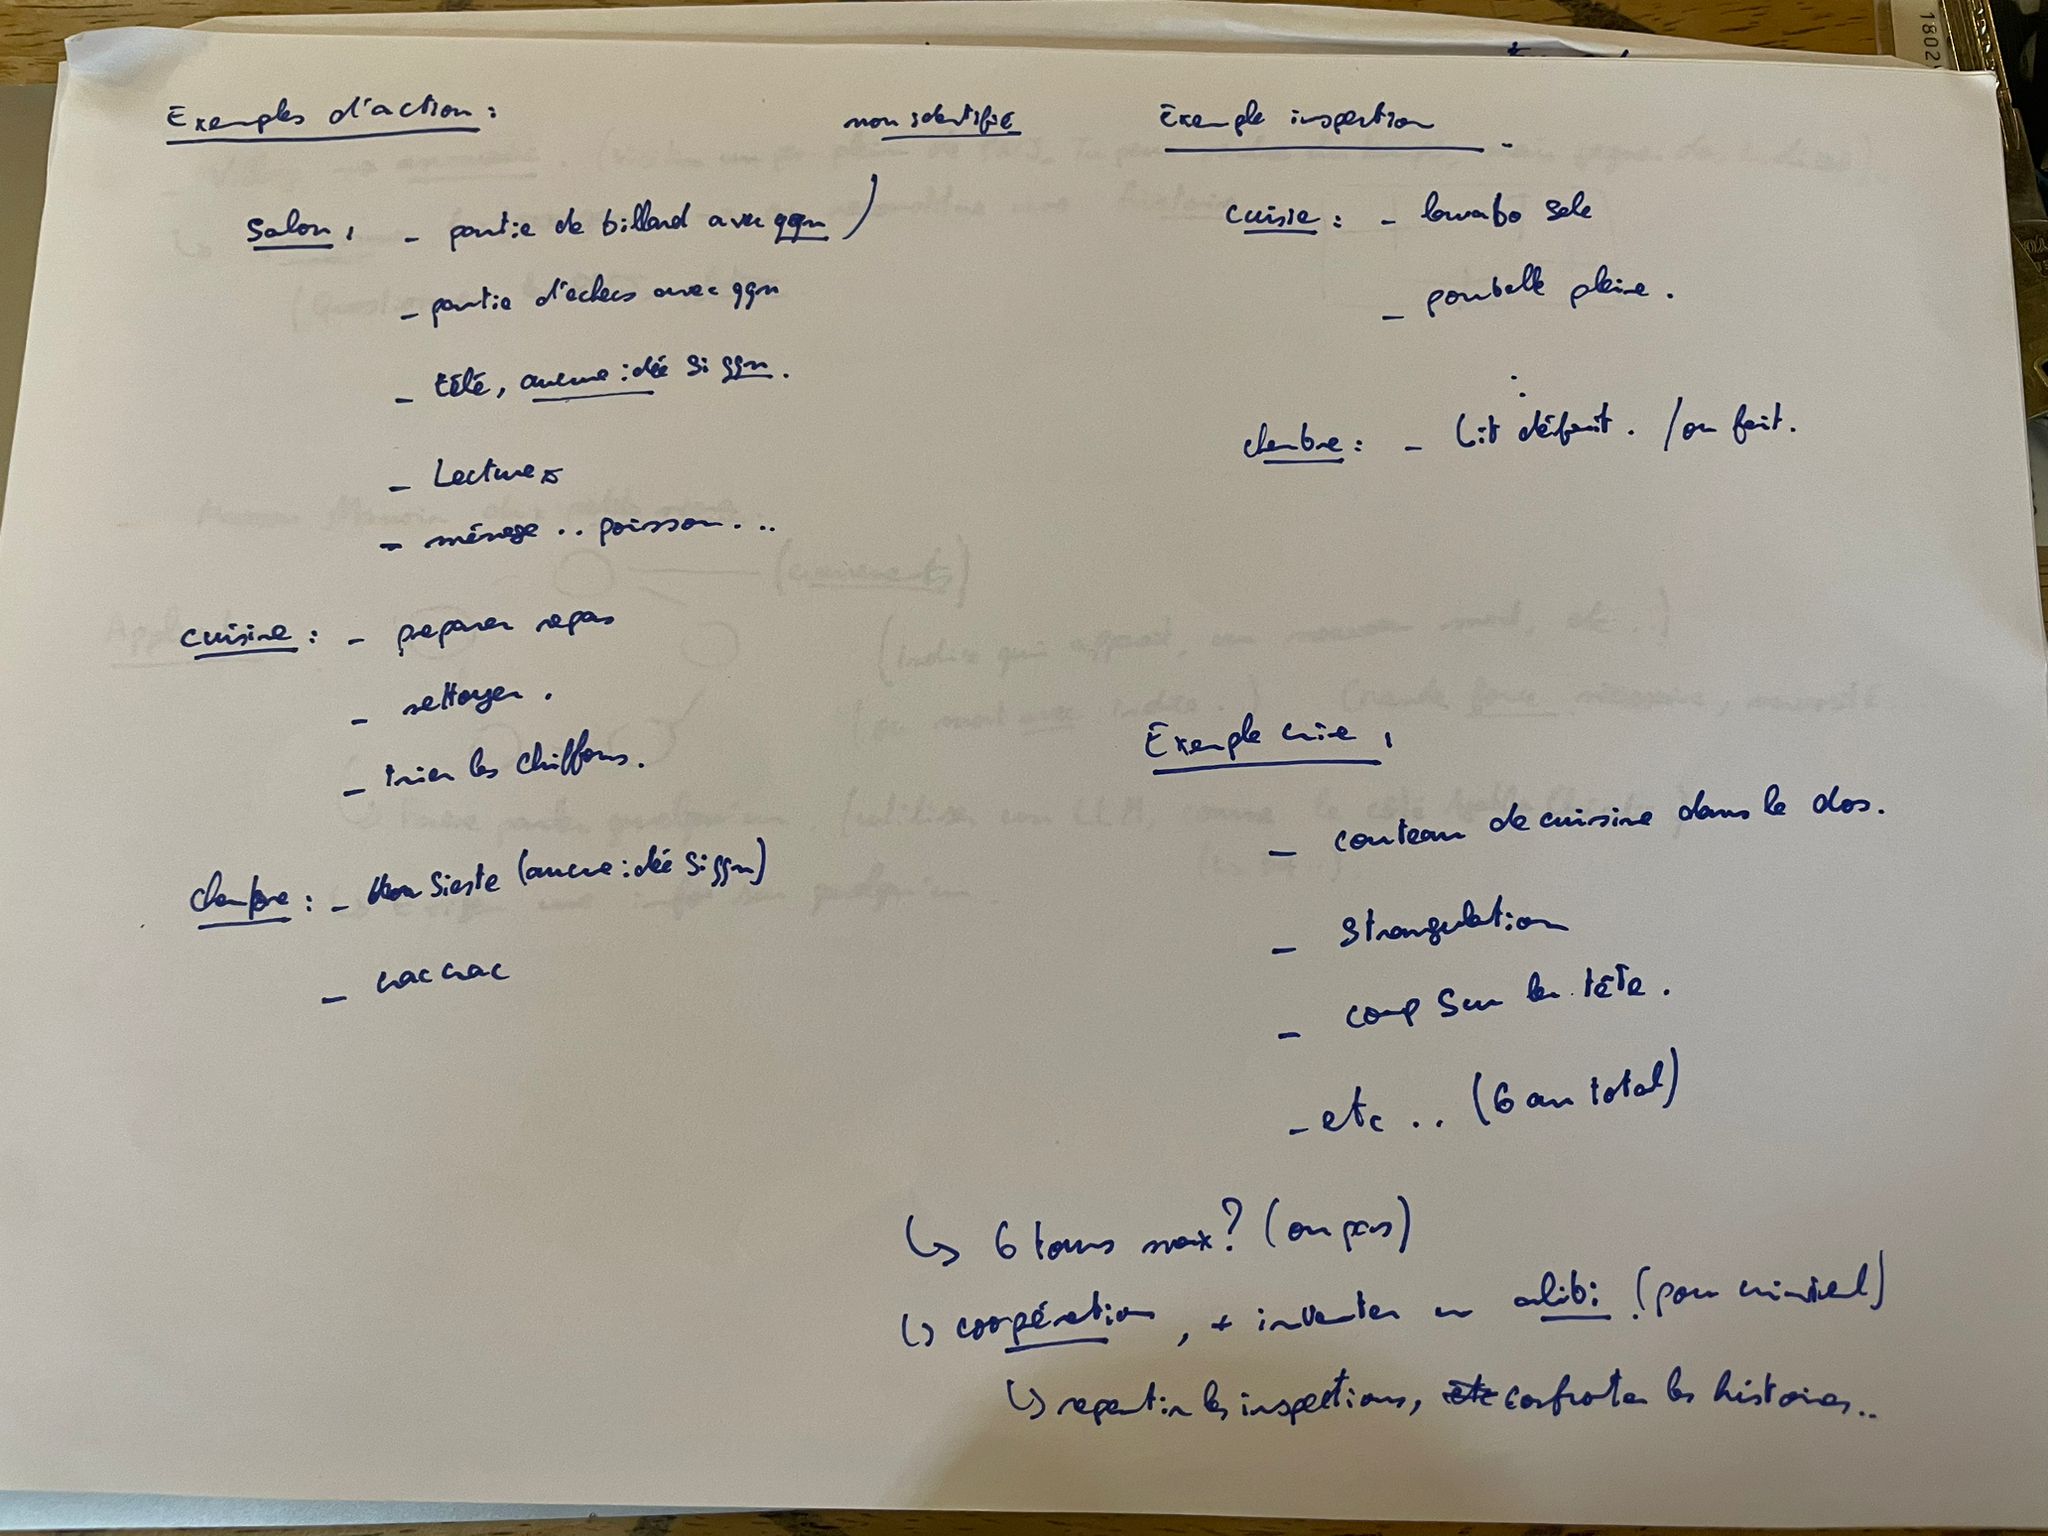 Exemples d'action :
non identifié
Salon : - partie de billard avec qqn )
- partie d'echecs avec qqn
- télé, aucune idée si qqn.
- Lectures
- ménage .. poisson...
cuisine : - preparer repas
- nettoyer.
- trier les chiffons.
chambre : - Sieste (aucune idée si qqn)
- crac crac
Exemple inspection
cuisie : - lavabo sale
- poubelle pleine.
chambre : - Lit défait. / ou fait.
Exemple crime :
- couteau de cuisine dans le dos.
- Strangulation
- coup sur la tête.
- etc .. (6 au total)
↳ 6 tours max ? (ou pas)
↳ coopération, + inventer un alibi (pour criminel)
↳ repartir les inspections, etc confronter les histoires..